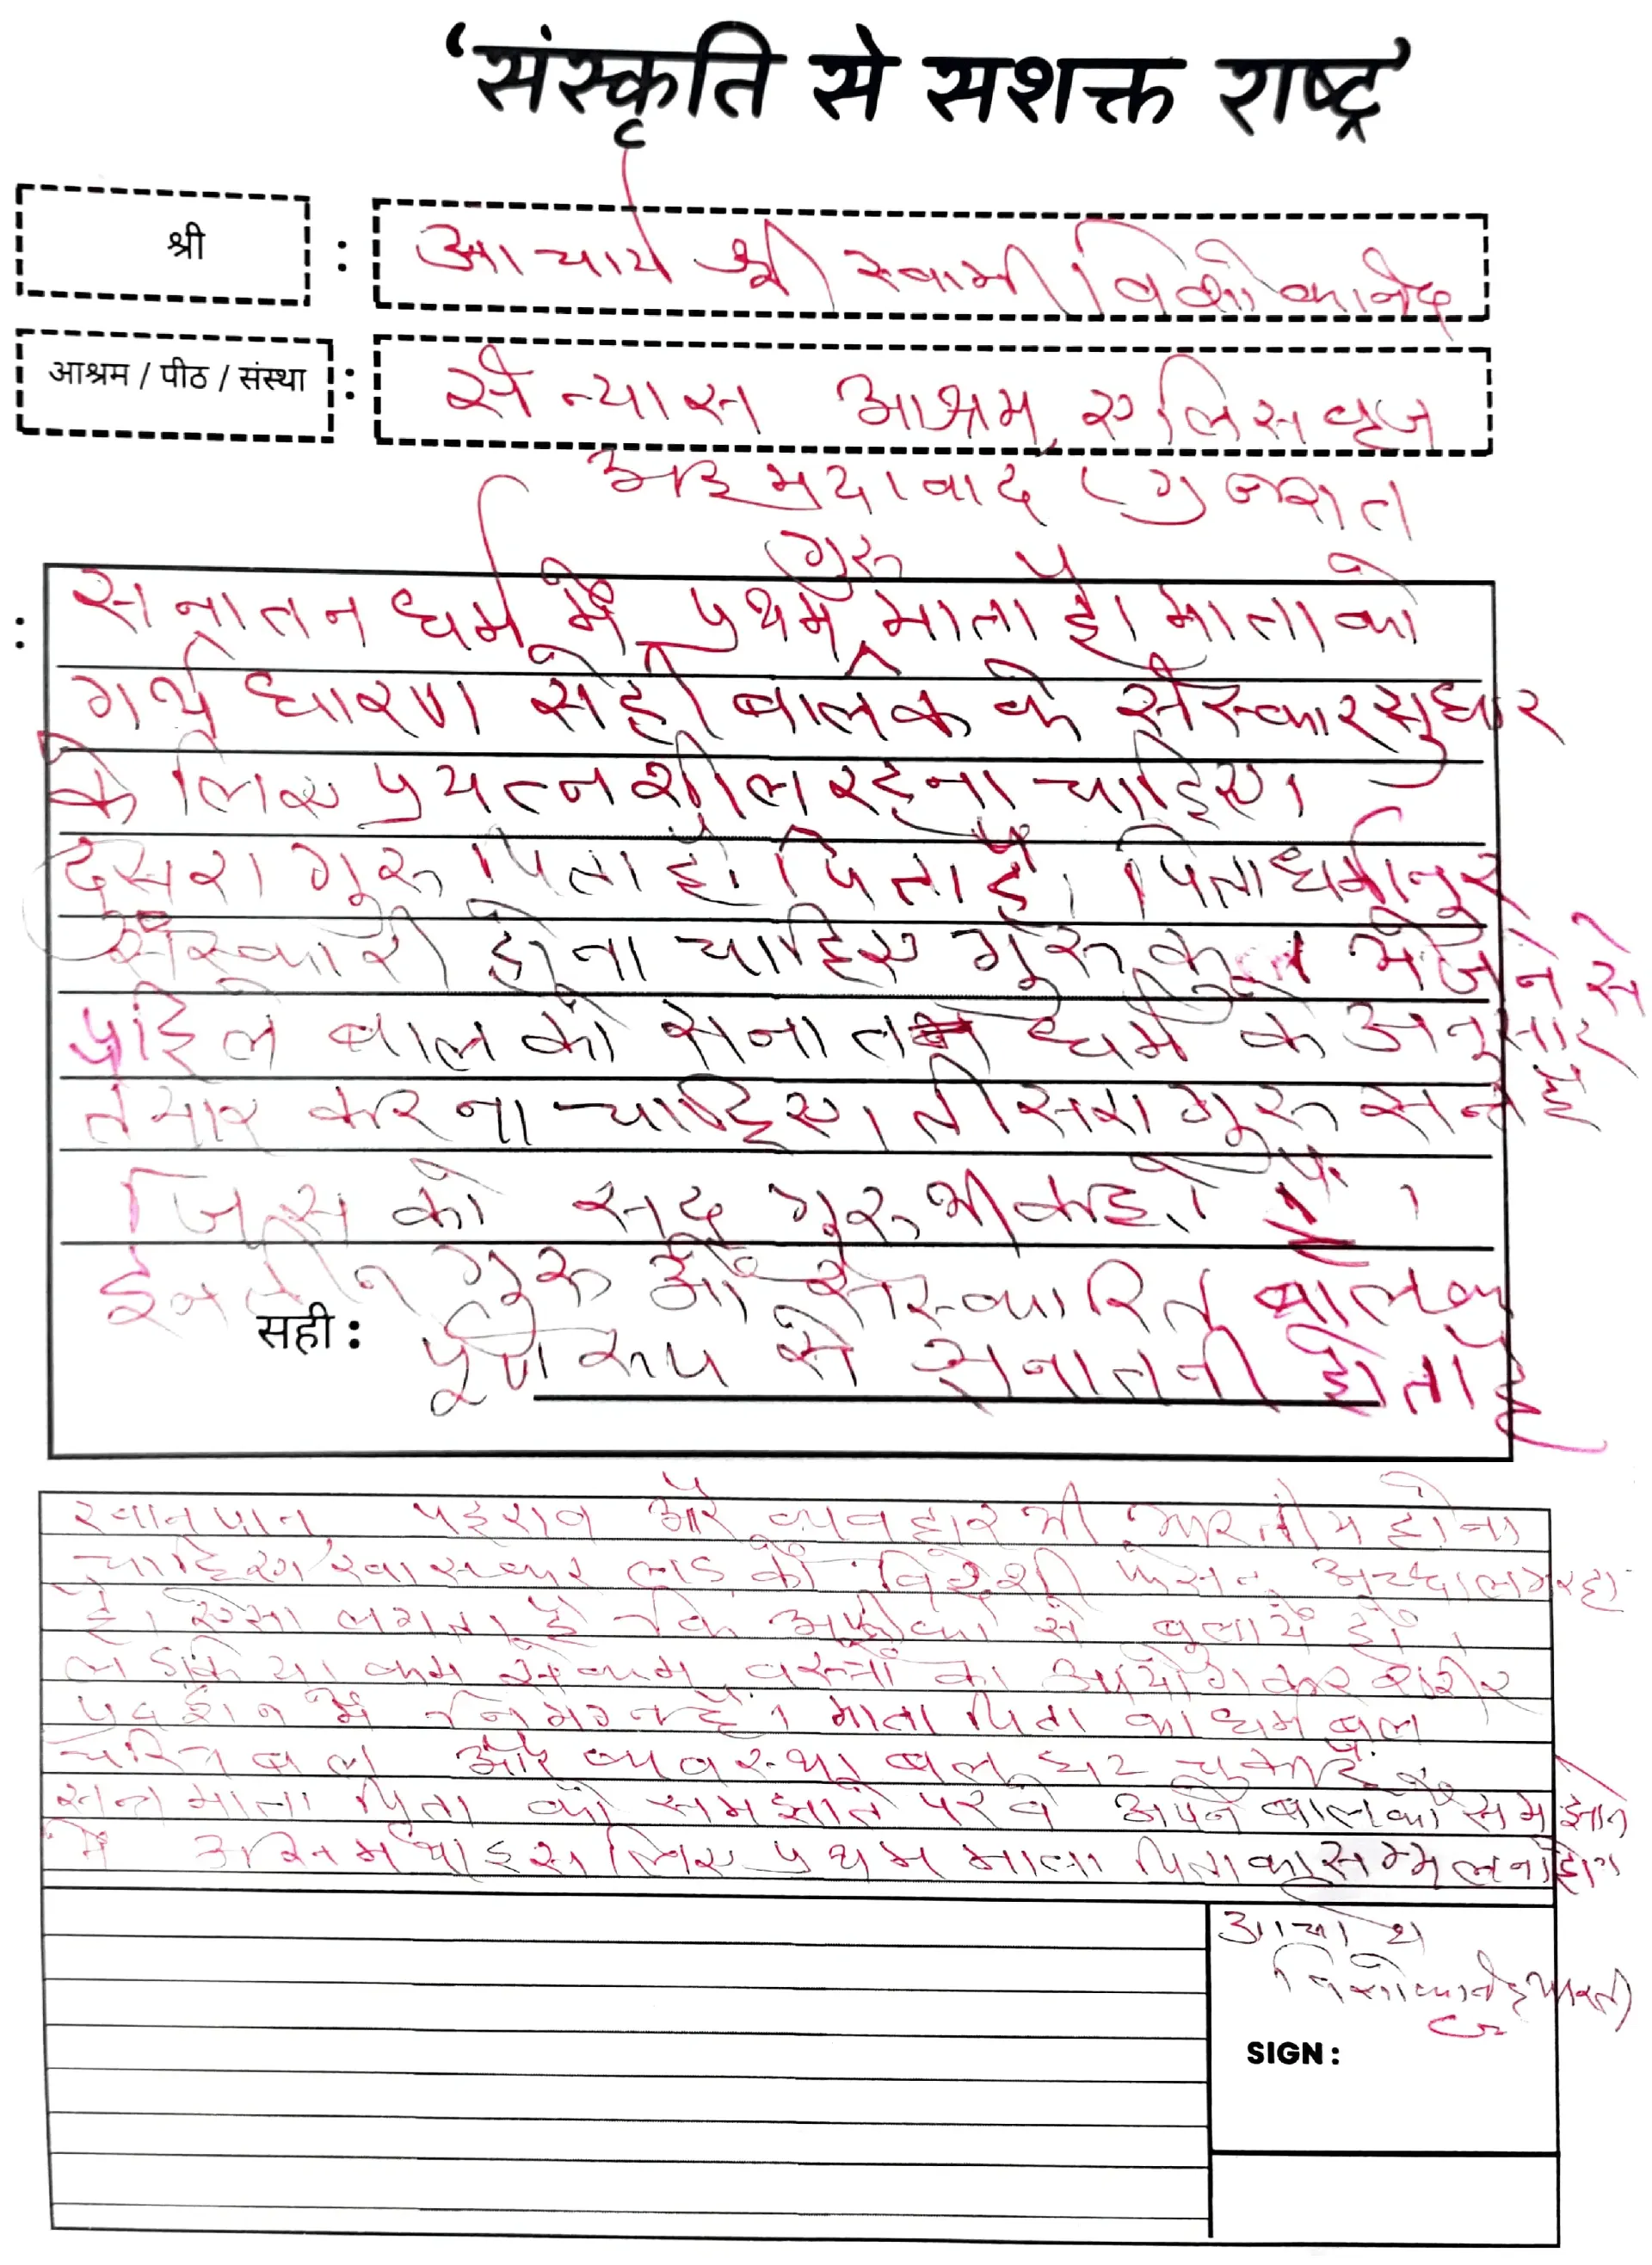 ‘संस्कृति से सशक्त राष्ट्र’
श्री : आचार्य श्री स्वामी विशोकानंद
आश्रम / पीठ / संस्था : संन्यास आश्रम, एलिसवृज
अहमदावाद (गुजरात
: सनातन धर्म में प्रथम गुरु माता है। माता को
गर्भ धारण से ही बालक के संस्कार सुधार
के लिए प्रयत्नशील रहना चाहिए।
दुसरा गुरु पिता है। पिता है। पिता धर्मानुर
संस्कारी होना चाहिए गुरुकुल भेजने से
पहिले बालको सनातन धर्म के अनुसार
तैयार करना चाहिए। तीसरा गुरु सन्त है
जिसको सद गुरु भी कहते हैं।
इन तीन गुरुओं से संस्कारित बालक
सही : पूर्ण रूप से सनातनी होता है
खानपान पहराव और व्यवहार भी भारतीय होना
चाहिए। खासकर लड़कों विदेशी फेसन अच्छा लग रहा
है। एसा लगता है कि अफ्रीका से बुलाये हों।
लडकिया कम से कम वस्त्रों का उपयोग कर शरीर
प्रदर्शन में निमग्न है। माता पिता का धर्म बल
चरित्र बल और व्यवस्था बल घट चुका है।
सन्त माता पिता को समझाते पर वे अपने बालको समझाने
में इसलिए प्रथम माता पिता का सम्मलन हो
आचार्य
विशोकानंद भारती
SIGN :